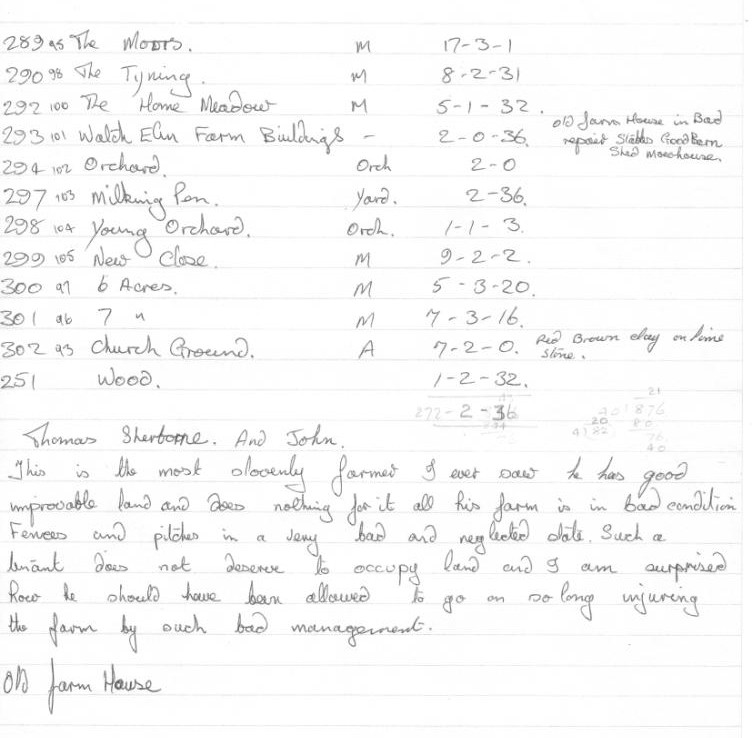 289 95 The Moors. M 17-3-1
290 98 The Tyning. M 8-2-31
292 100 The Home Meadow M 5-1-32.
293 101 Walch Elm Farm Buildings - 2-0-36. old farm House in Bad
repair Stables Good Barn
Shed
294 102 Orchard. Orch 2-0
297 103 Milking Pen. Yard. 2-36.
298 104 Young Orchard. Orch. 1-1-3.
299 105 New Close. M 9-2-2.
300 97 6 Acres. M 5-3-20.
301 96 7 " M 7-3-16.
302 93 Church Ground. A 7-2-0. Red Brown clay on lime
stone.
251 Wood. 1-2-32.
272-2-36
Thomas Sherborne. And John.
This is the most slovenly farmer I ever saw he has good
improvable land and does nothing for it all his farm is in bad condition
Fences and pitches in a very bad and neglected state. Such a
tenant does not deserve to occupy land and I am surprised
how he should have been allowed to go on so long injuring
the farm by such bad management.
Old farm House